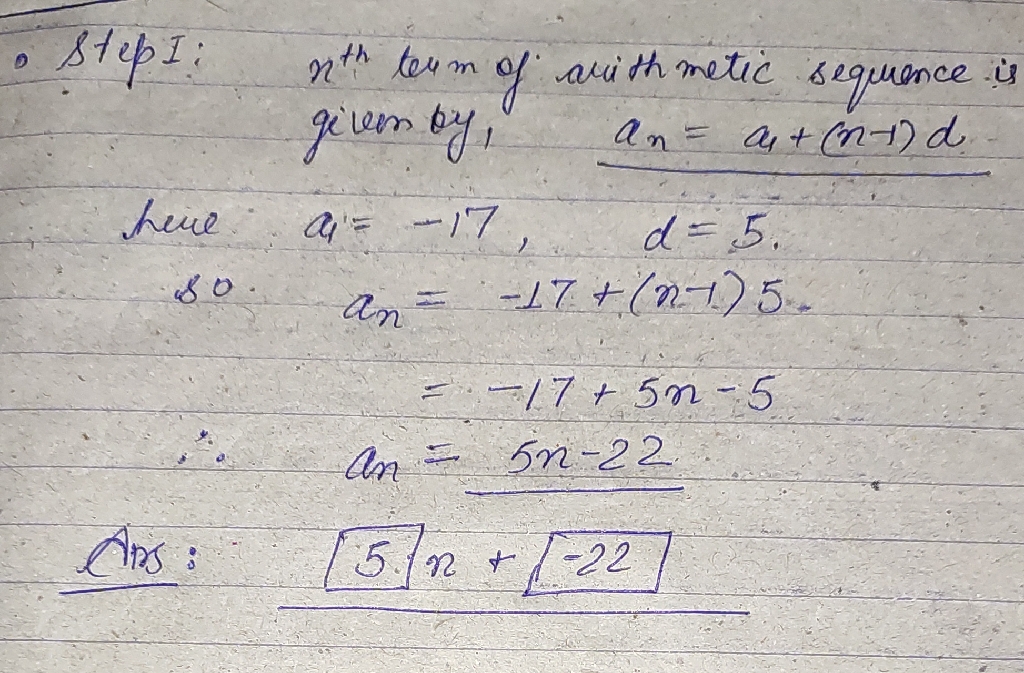 • Step I: nth term of arithmetic sequence is
given by, an = a1 + (n-1) d
here a1 = -17, d = 5.
so. an = -17 + (n-1) 5.
= -17 + 5n - 5
∴ an = 5n-22
Ans: 5 n + -22